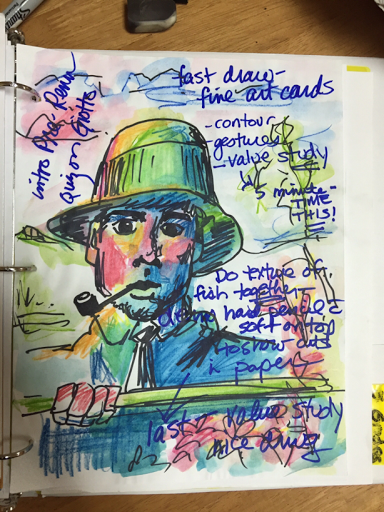 intro Pre-Renn
Quiz on Giotto
fast draw-
fine art cards
-contour
gestures
-value study
5 minute-
TIME
THIS!
Do texture of
fish together-
draw hard pencil &
soft on top
to show cuts
in paper
last- value study
nice drwg